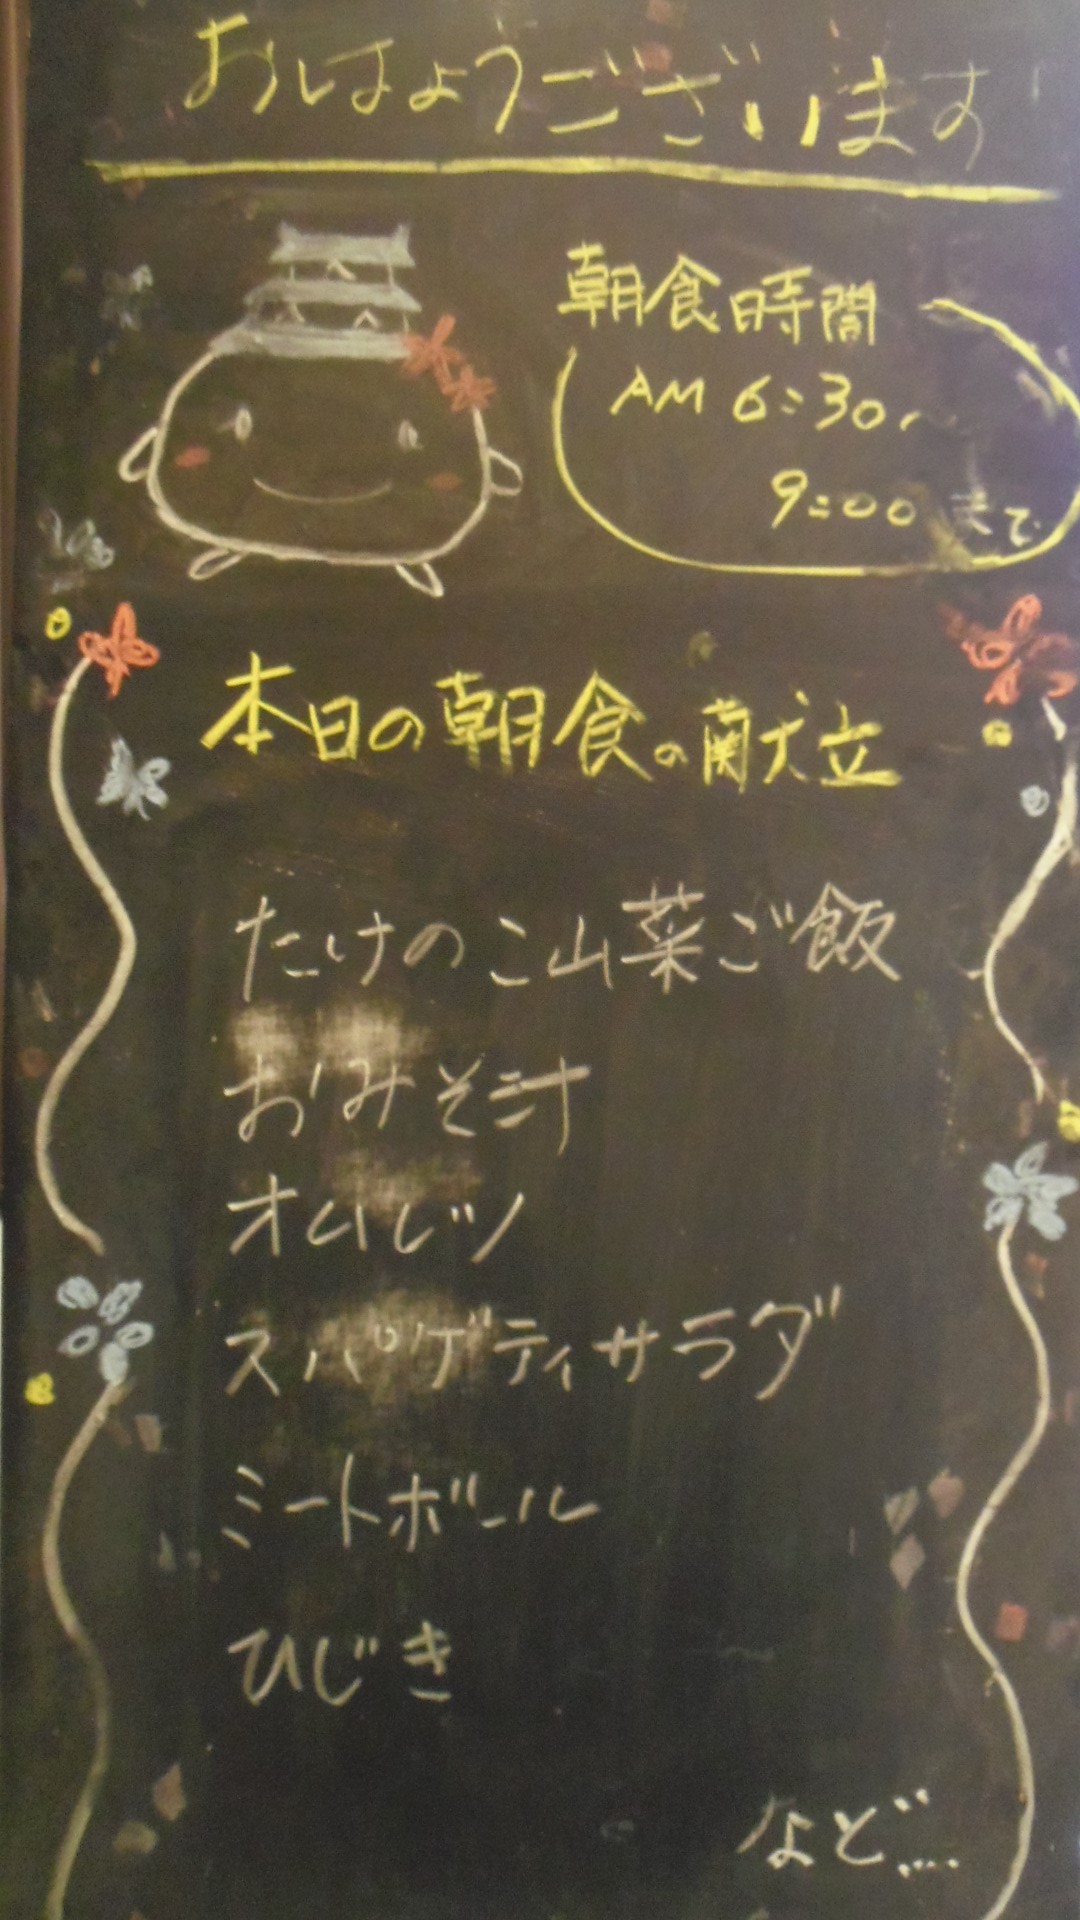 おはようございます
朝食時間
AM 6:30～
9:00 まで
本日の朝食の献立
たけのこ山菜ご飯
おみそ汁
オムレツ
スパゲティサラダ
ミートボール
ひじき
など....